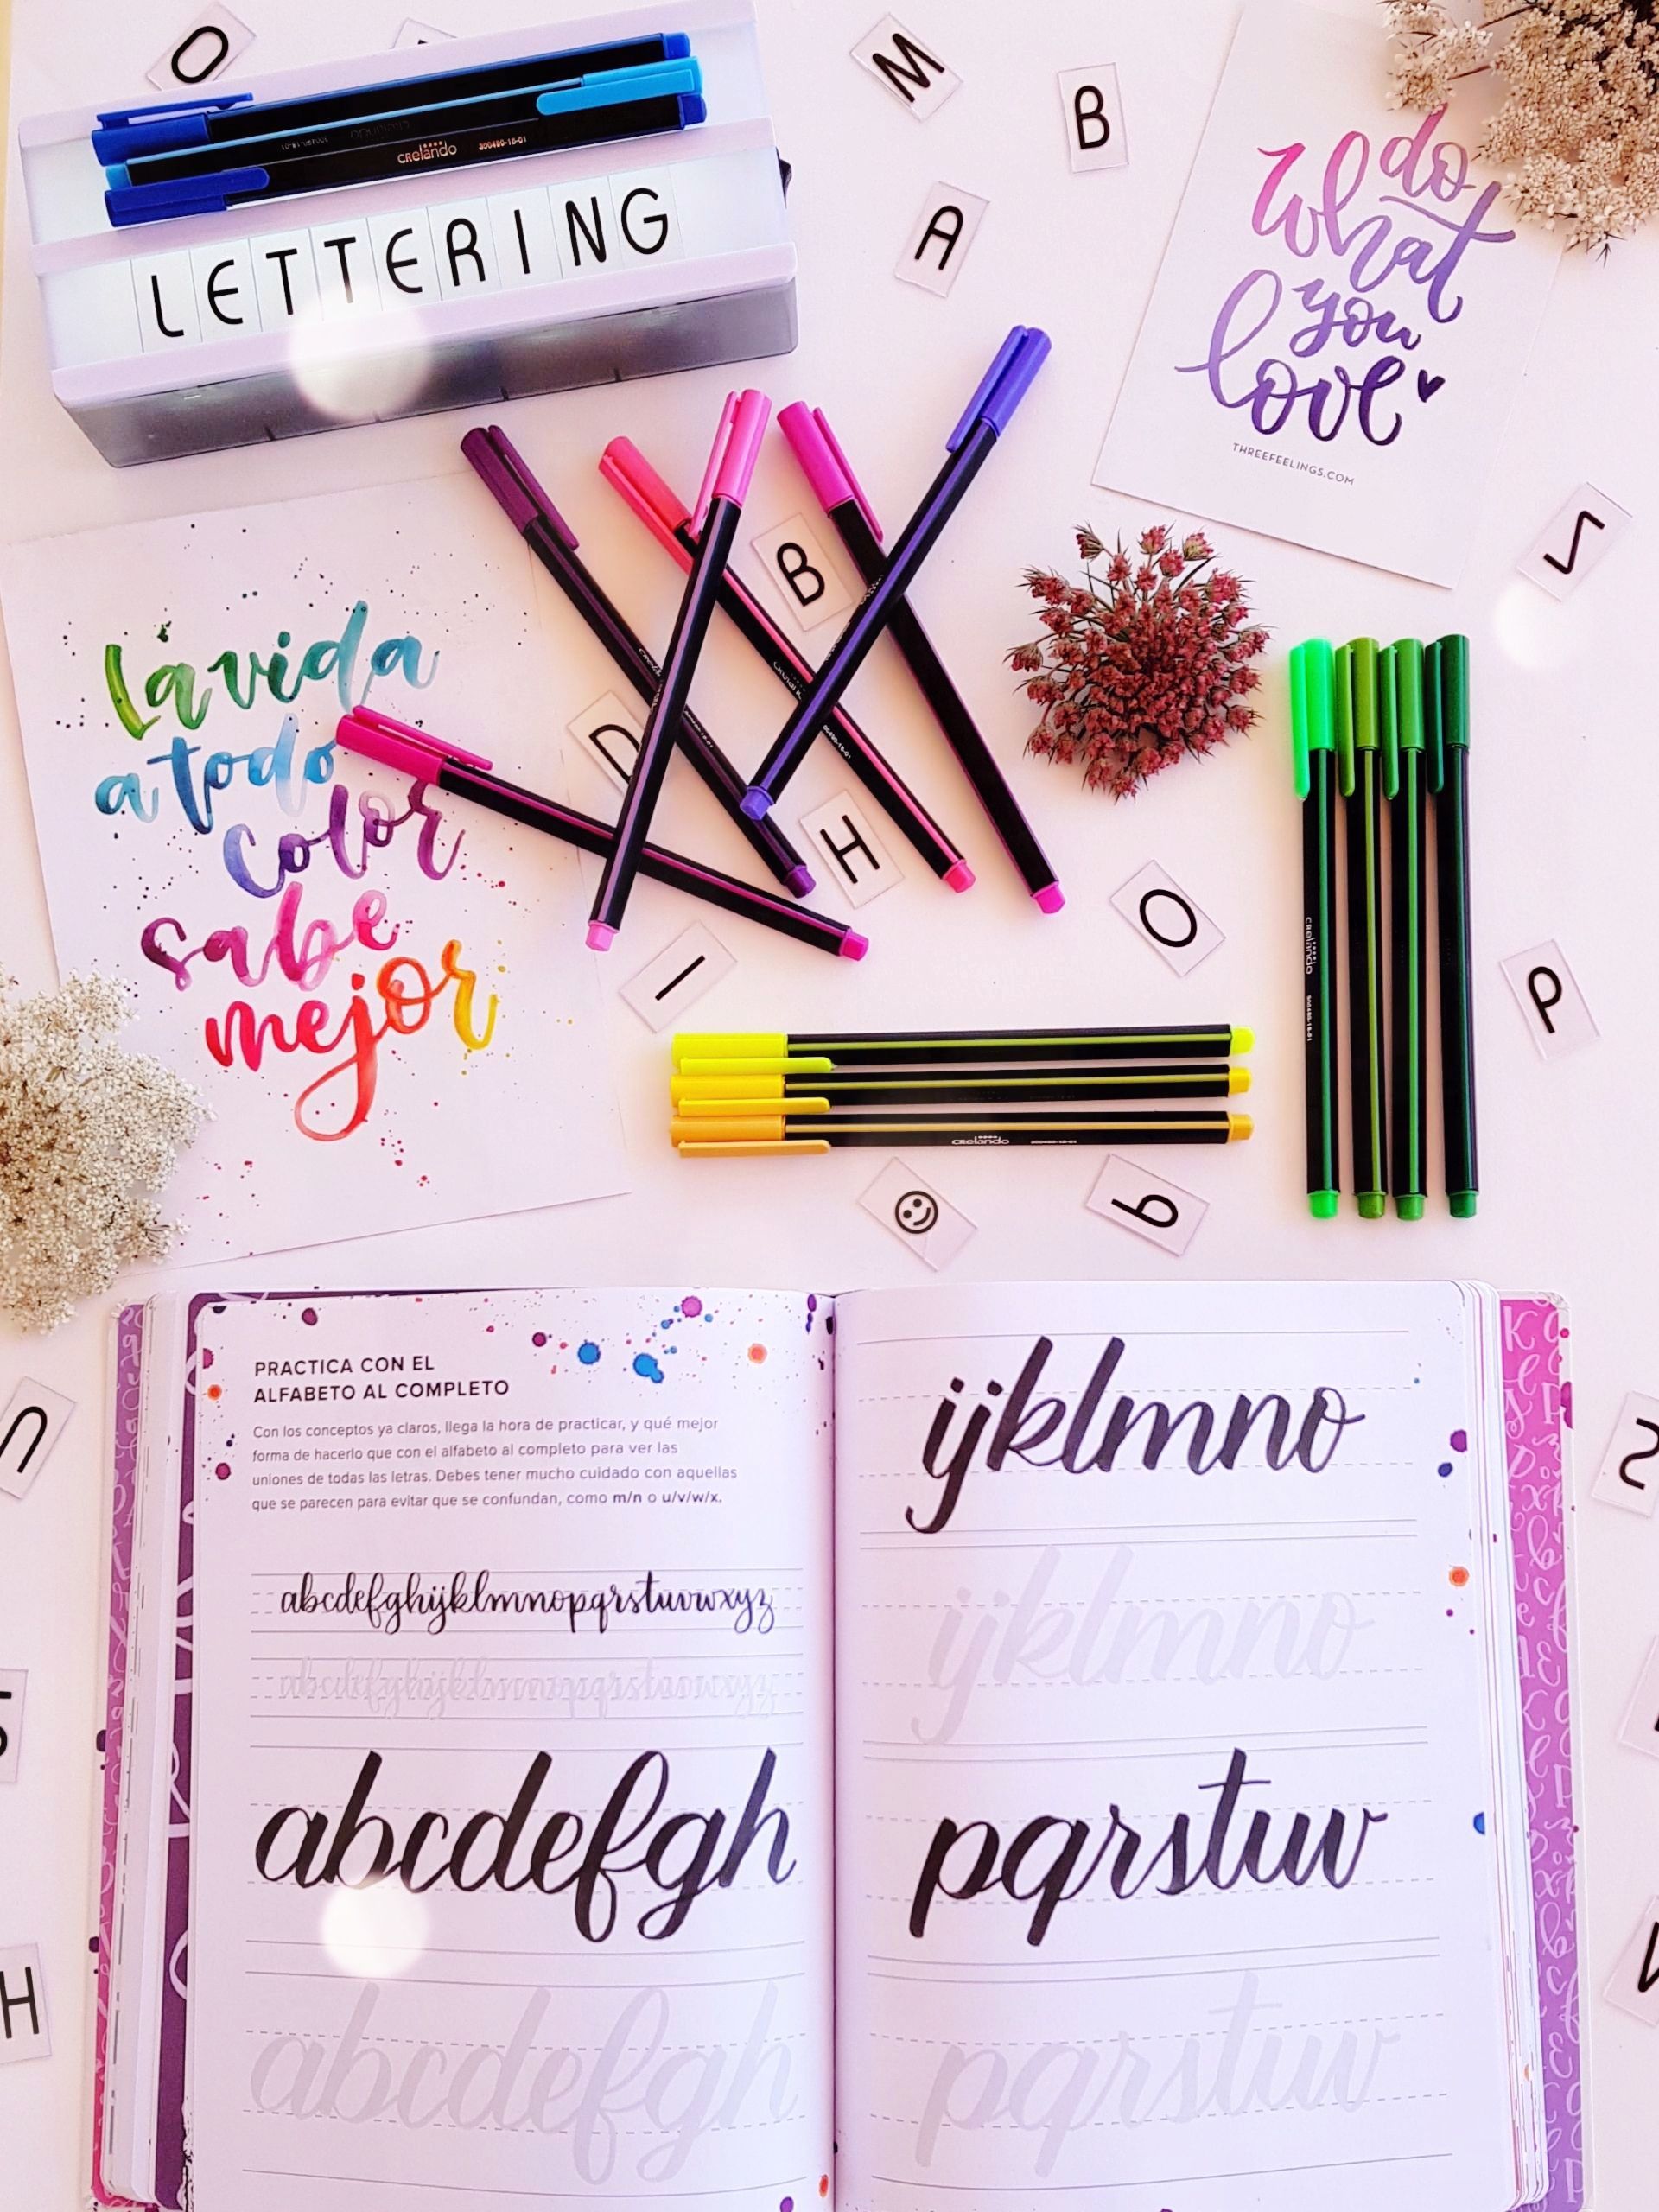 O
M
B
crelando 300490-18-01
LETTERING
A
do
what
you
love
THREEFEELINGS.COM
N
B
La vida
a todo
color
sabe
mejor
D
H
O
I
P
crelando
crelando
☺
PRACTICA CON EL
ALFABETO AL COMPLETO
Con los conceptos ya claros, llega la hora de practicar, y qué mejor
forma de hacerlo que con el alfabeto al completo para ver las
uniones de todas las letras. Debes tener mucho cuidado con aquellas
que se parecen para evitar que se confundan, como m/n o u/v/w/x.
abcdefghijklmnopqrstuvwxyz
abcdefghijklmnopqrstuvwxyz
abcdefgh
abcdefgh
ijklmno
ijklmno
pqrstuv
pqrstuv
H